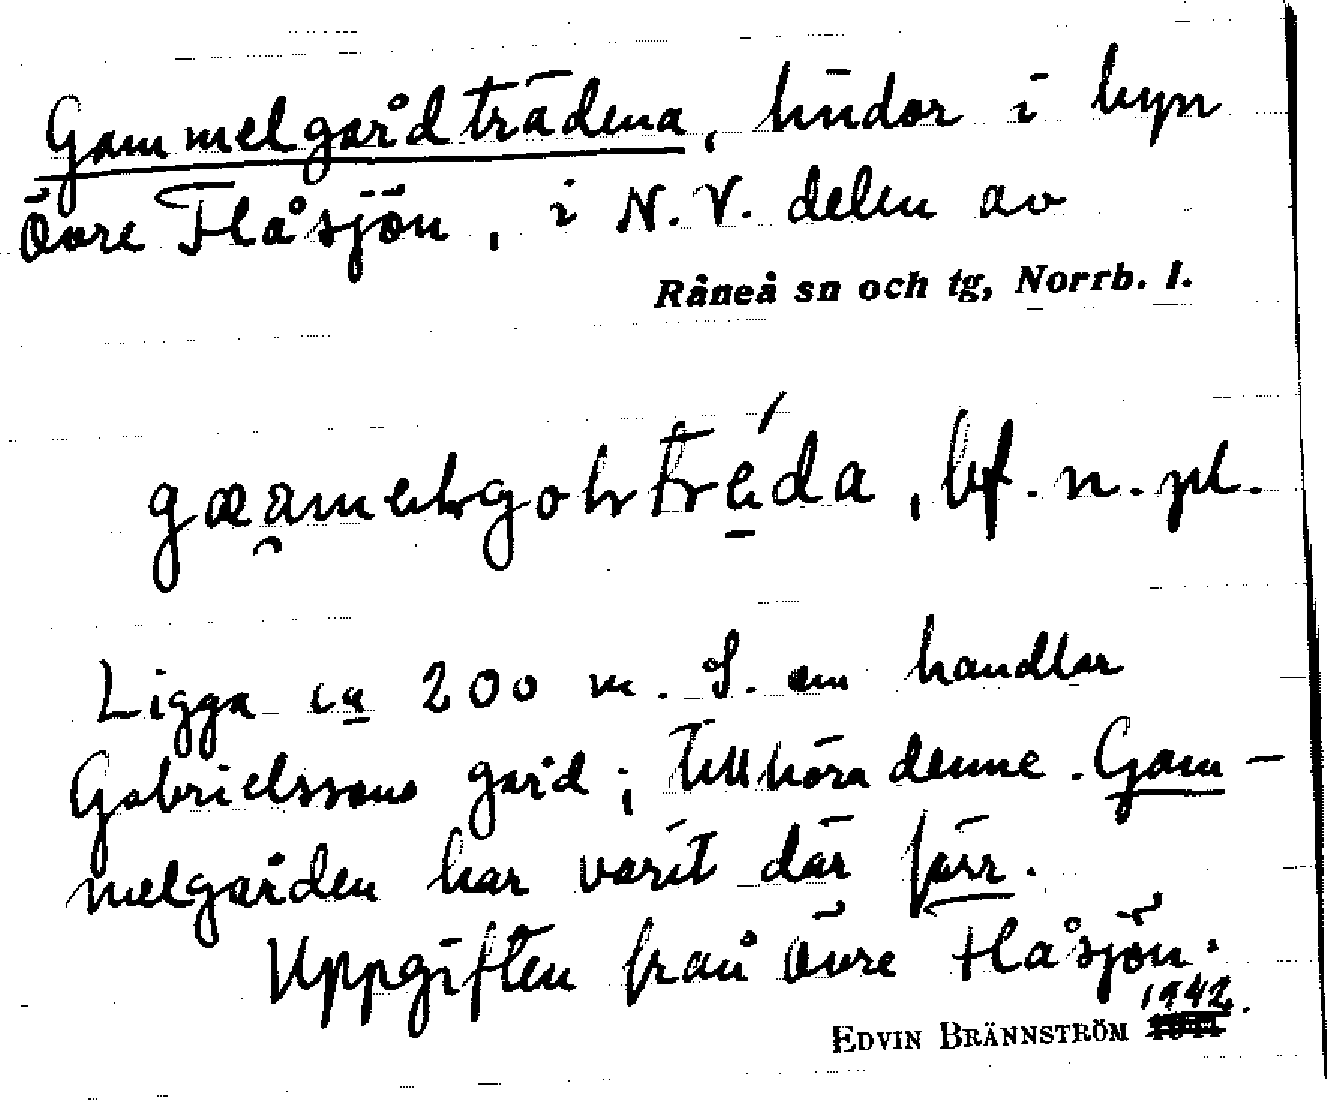 Gammelgårdträdena, lindor i byn
Övre Flåsjön, i N.V. delen av
Råneå sn och tg, Norrb. l.
bf. n. pl.
Ligga ca 200 m. S. om handlar
Gabrielssons gård; tillhöra denne. Gam-
melgården har varit där förr.
Uppgiften från Övre Flåsjön.
1942.
EDVIN BRÄNNSTRÖM